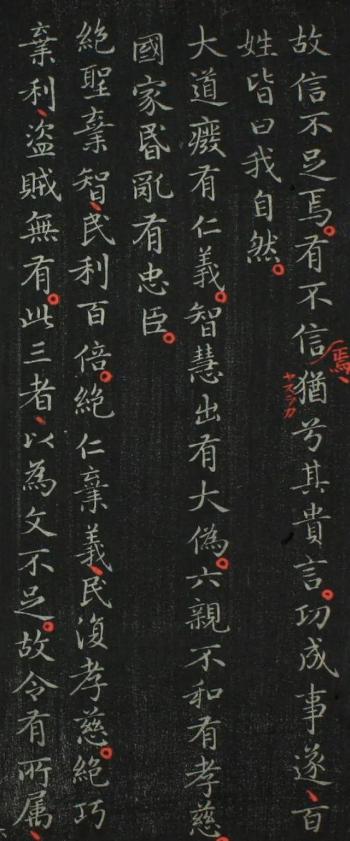 故信不足焉。有不信焉、猶兮其貴言。功成事遂、百
姓皆曰我自然。
大道癈有仁義。智慧出有大偽。六親不和有孝慈。
國家昬亂有忠臣。
絶聖棄智、民利百倍。絶仁棄義、民復孝慈。絶巧
棄利、盗賊無有。此三者、以為文不足。故令有所属、